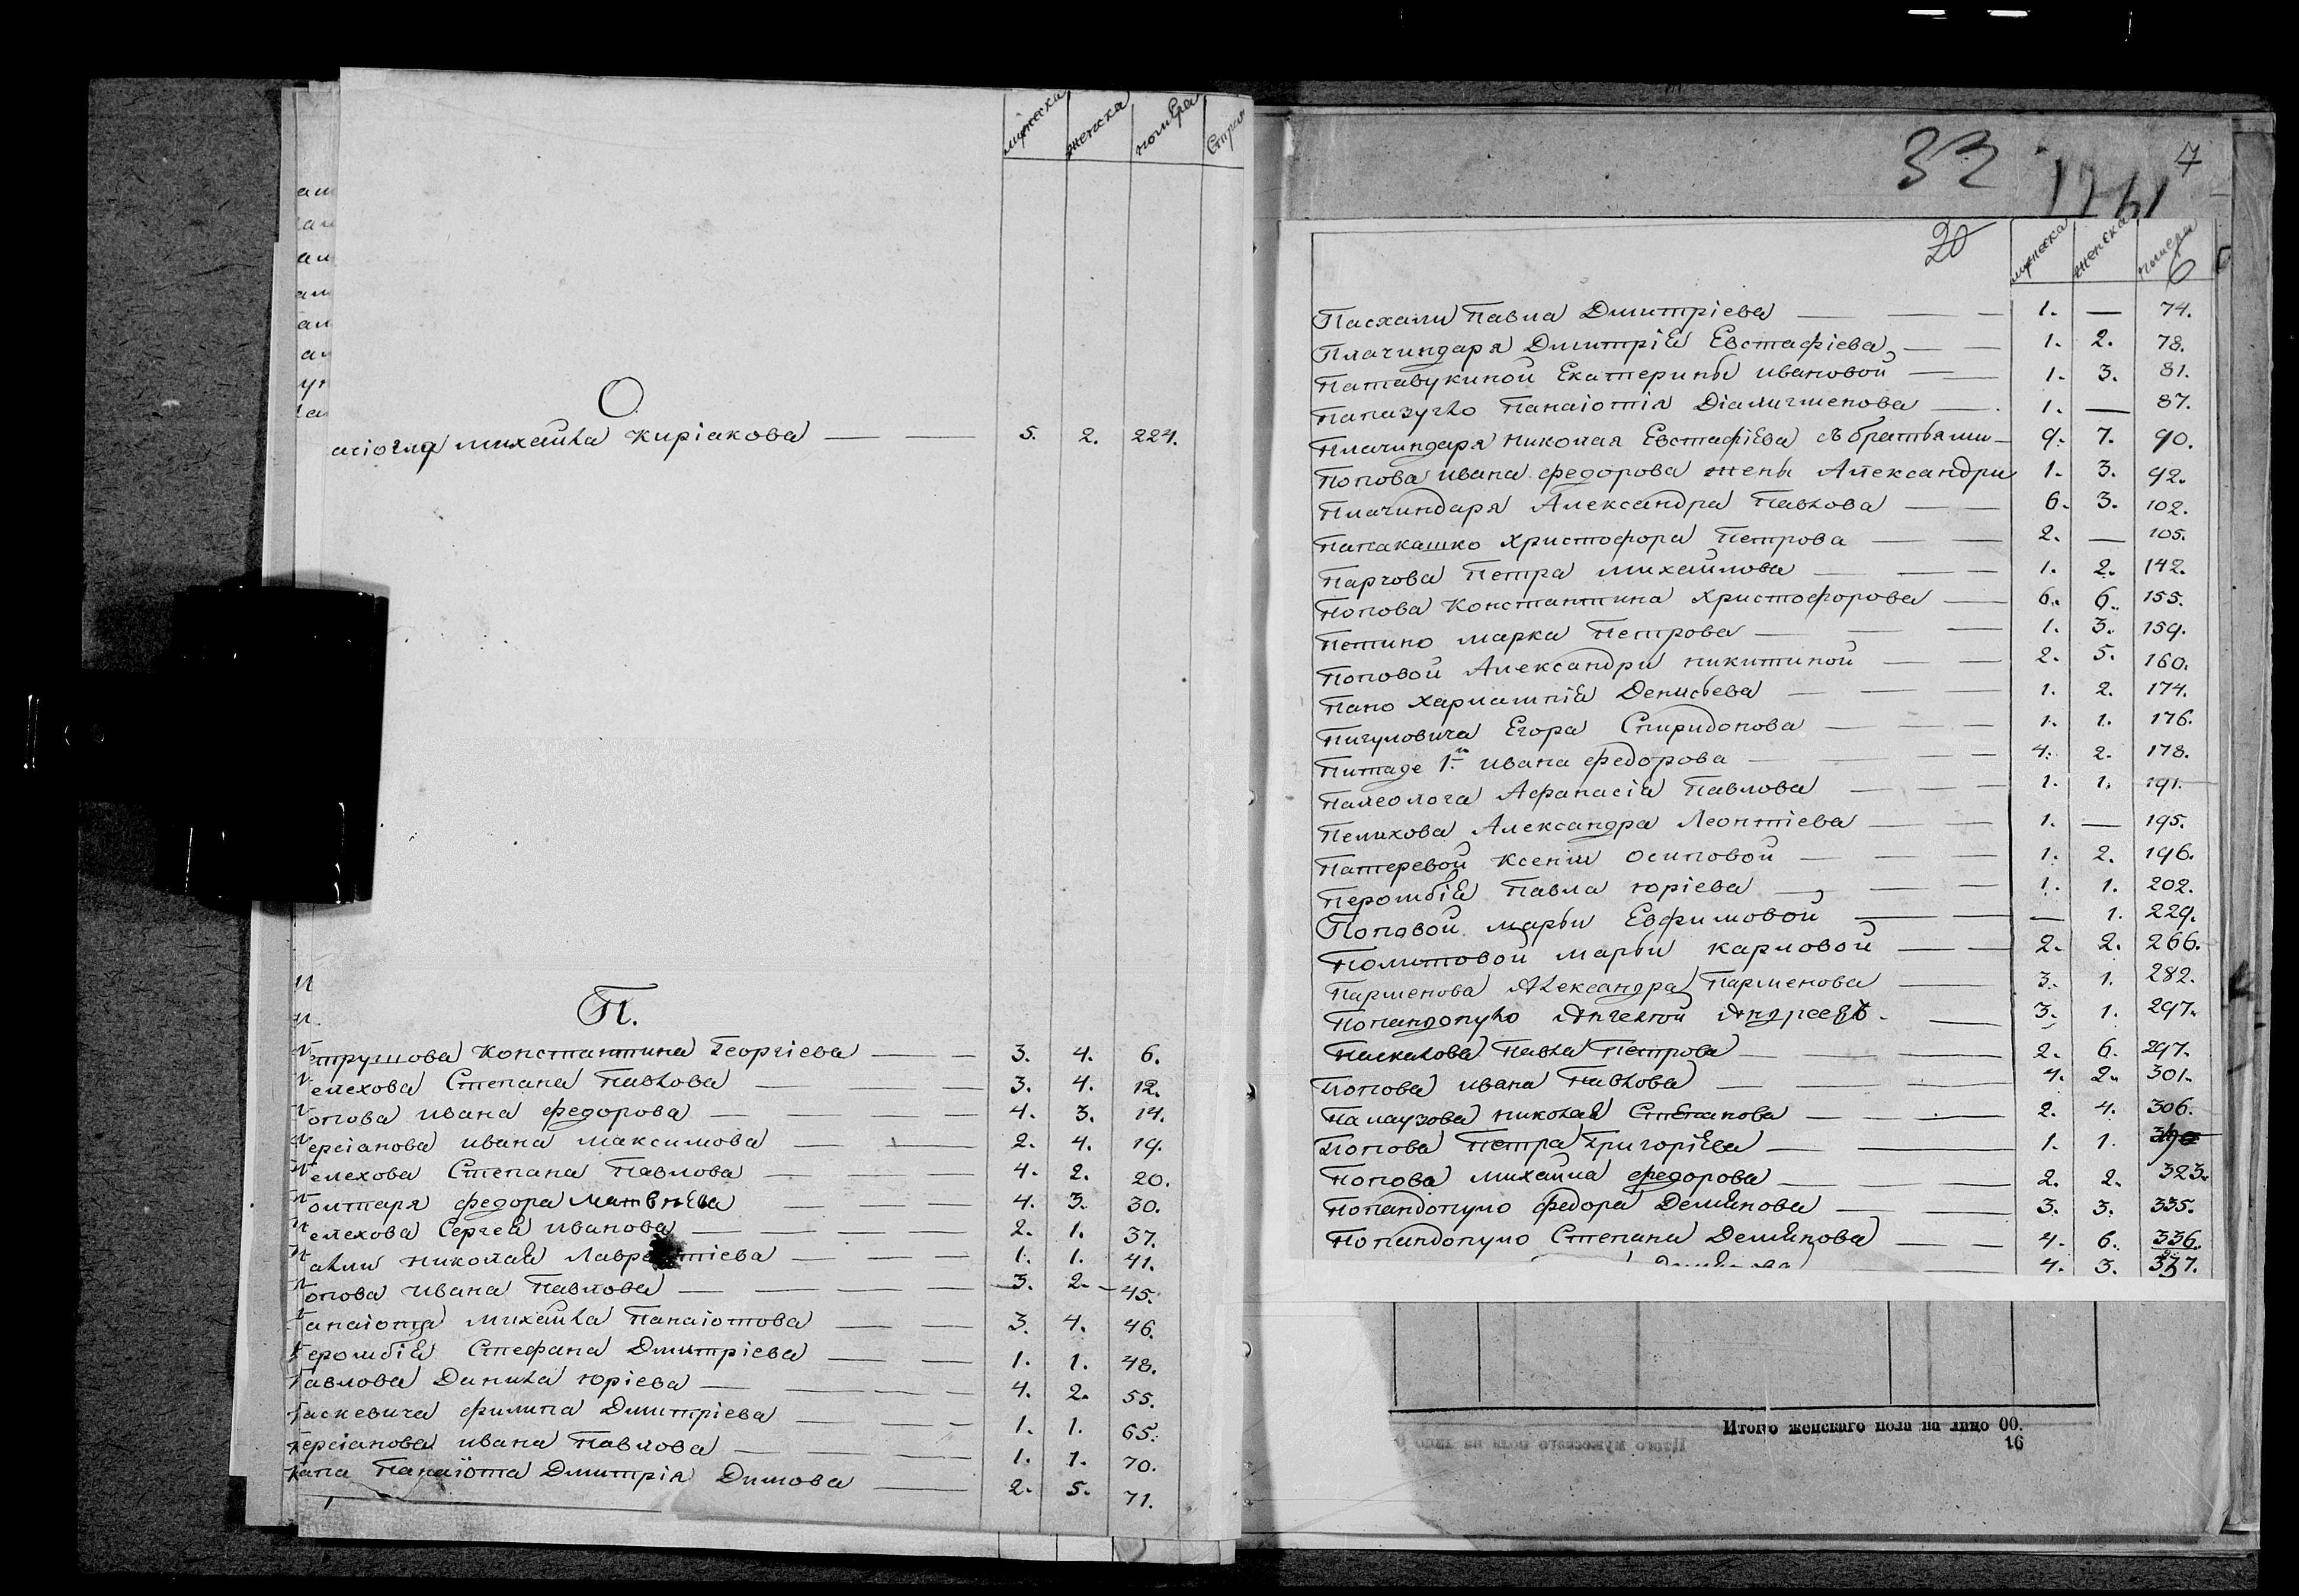 мужеска женска номера Стран
О
асіогля Михаила Киріакова — — 5. 2. 224.
П.
етрушова Константина Георгіева — — 3. 4. 6.
елехова Степана Павлова — — 3. 4. 12.
опова Ивана Федорова — — 4. 3. 14.
ерсіанова Ивана Максимова — — 2. 4. 19.
елехова Степана Павлова — — 4. 2. 20.
олтаря Федора Матвѣева — — 4. 3. 30.
елехова Сергея Иванова — — 2. 1. 37.
авли Николая Лаврентіева — — 1. 1. 41.
опова Ивана Павлова — — 3. 2. 45.
Панаіота Михаила Панаіотова — — 3. 4. 46.
Перомбіи Стефана Дмитріева — — 1. 1. 48.
Павлова Данила Юріева — — 4. 2. 55.
Паскевича Филипа Дмитріева — — 1. 1. 65.
Персіанова Ивана Павлова — — 1. 1. 70.
Папа Панаіота Дмитрія Димова — 2. 5. 71.
33 7
20 мужеска женска номера
6
Пасхали Павла Дмитріева — — 1. — 74.
Плачиндаря Дмитрія Евстафіева — — 1. 2. 78.
Патавукиной Екатерины Ивановой — — 1. 3. 81.
Папазугло Панаіотія Діамигменова — 1. — 87.
Плачиндаря Николая Евстафіева съ братьями — 9. 7. 90.
Попова Ивана Федорова жены Александры 1. 3. 92.
Плачиндаря Александра Павлова — — 6. 3. 102.
Папакашко Христофора Петрова — — 2. — 105.
Паргова Петра Михайлова — — 1. 2. 142.
Попова Константина Христофорова — 6. 6. 155.
Петино Марка Петрова — — 1. 3. 159.
Поповой Александры Никитиной — — 2. 5. 160.
Папо Харлампія Денисьева — — 1. 2. 174.
Пигуловича Егора Спиридонова — — 1. 1. 176.
Питаде 1й Ивана Федорова — — 4. 2. 178.
Палеолога Афанасія Павлова — — 1. 1. 191.
Пелихова Александра Леонтіева — — 1. — 195.
Патеревой Ксеніи Осиповой — — 1. 2. 196.
Перомбія Павла Юріева — — 1. 1. 202.
Поповой Марьи Евфимовой — — — 1. 229.
Политовой Марьи Карповой — — 2. 2. 266.
Парменова Александра Парменова — 3. 1. 282.
Попандопуло Ангелой Андреевъ — 3. 1. 297.
Паскалова Павла Петрова — — 2. 6. 297.
Попова Ивана Павлова — — 4. 2. 301.
Палаузова Николая Степанова — — 2. 4. 306.
Попова Петра Григоріева — — 1. 1.
Попова Михаила Федорова — — 2. 2. 323.
Попандопуло Федора Демянова — — 3. 3. 335.
Попандопуло Степана Демянова — — 4. 6. 336.
4. 3. 337.
Итого женскаго пола на лицо 00.
16